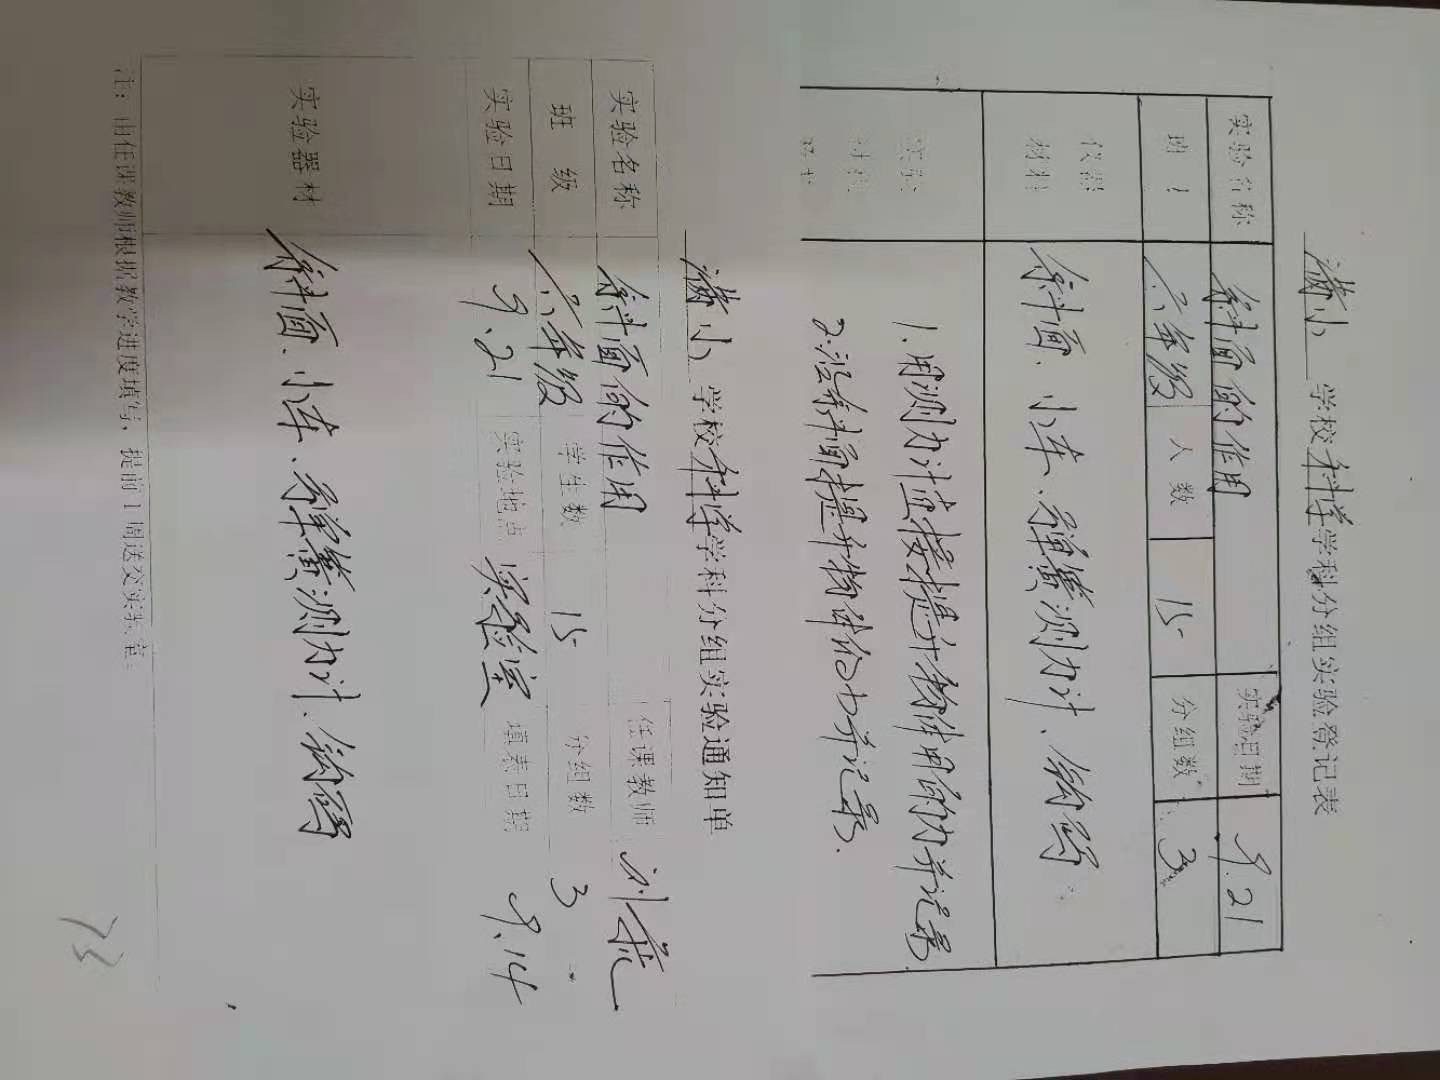 小 学校科学学科分组实验登记表
实验名称 斜面的作用 实验日期 9.21
班 六年级 人数 15 分组数 3
仪器
材料 斜面、小车、弹簧测力计、钩码
1.用测力计直接提升物体用的力并记录.
2.沿斜面提升物体的力并记录.
小 学校科学学科分组实验通知单
实验名称 斜面的作用 任课教师 刘
班级 六年级 学生数 15 分组数 3
实验日期 9.21 实验地点 实验室 填表日期 9.14
实验器材 斜面、小车、弹簧测力计、钩码
注：由任课教师根据教学进度填写，提前1周送交实验室。
73